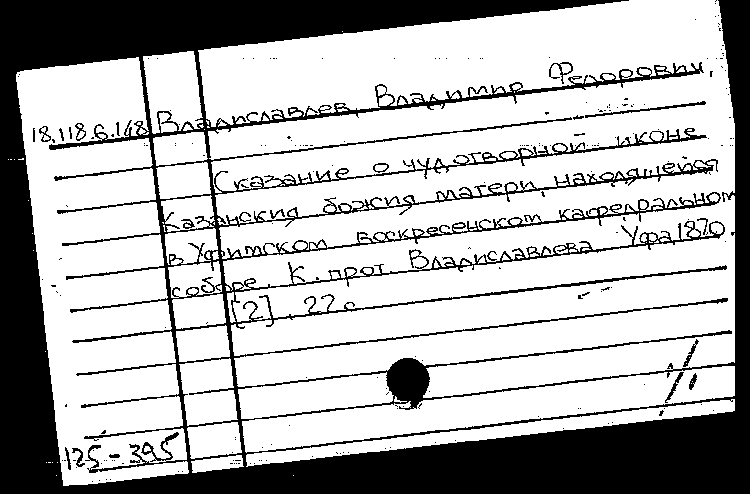 18.118.6.148 Владиславлев, Владимир Федорович,
Сказание о чудотворной иконе
Казанския божия матери, находящейся
в Уфимском воскресенском кафедральном
соборе. К. прот. Владиславлева. Уфа, 1870.
[2], 22 с
125-395